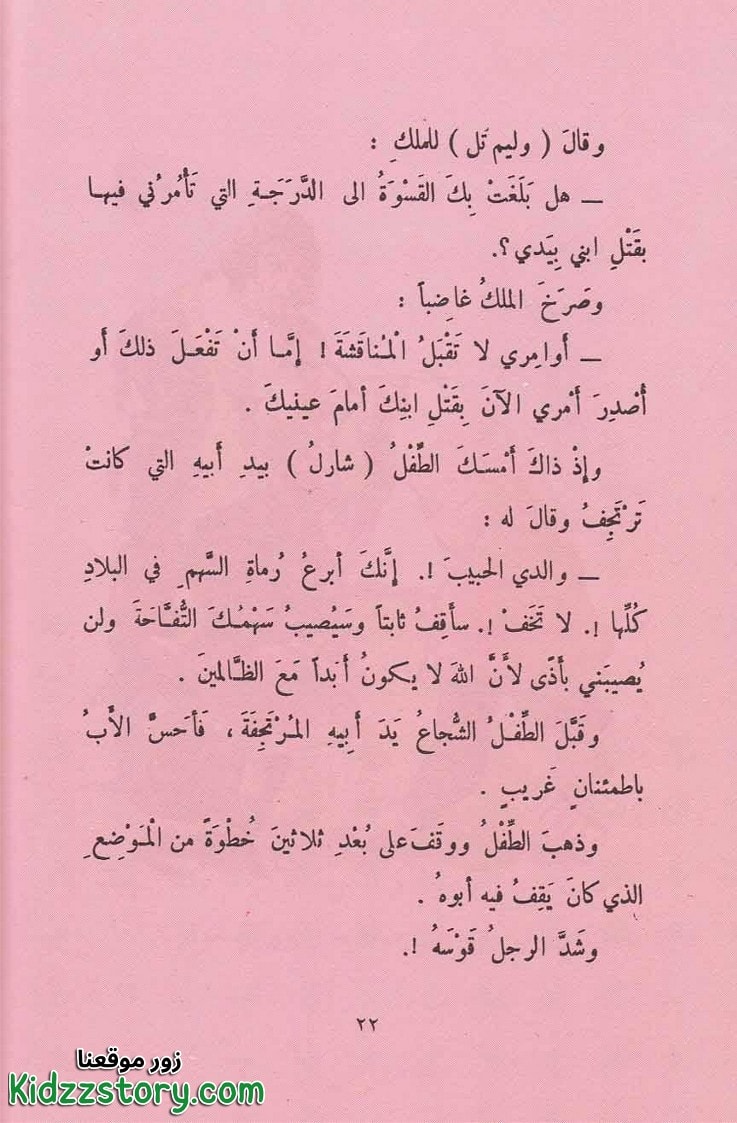 وقالَ ( وليم تَل ) للملكِ :
ــ هل بَلَغَتْ بِكَ القَسْوَةُ الى الدَّرَجَةِ التي تَأْمُرُني فيها
بقَتْلِ ابني بِيَدي ؟.
وصَرَخَ الملكُ غاضِباً :
ــ أوامِري لا تَقْبَلُ الْمُناقَشَةَ ! إمَّا أنْ تَفْعَلَ ذلكَ أو
أُصْدِرَ أمْري الآنَ بِقَتْلِ ابنِكَ أمامَ عينيكَ .
وإذْ ذاكَ أمْسَكَ الطِّفْلُ ( شارلُ ) بيدِ أبيهِ التي كانتْ
تَرْتَجِفُ وقالَ له :
ــ والدي الحبيبَ !. إنَّكَ أبرعُ رُماةِ السَّهمِ في البلادِ
كُلِّها !. لا تَخَفْ !. سأقِفُ ثابتاً وسَيُصيبُ سَهْمُكَ التُّفَّاحَةَ ولن
يُصيبَني بأذًى لأنَّ اللهَ لا يكونُ أبَداً مَعَ الظَّالمينَ .
وقَبَّلَ الطِّفْلُ الشُّجاعُ يَدَ أبِيهِ المُرْتَجِفَةَ ، فأحَسَّ الأبُ
باطمئنانٍ غَريبٍ .
وذهبَ الطِّفْلُ ووقَفَ على بُعْدِ ثلاثينَ خُطْوَةً من الْمَوْضِعِ
الذي كانَ يَقِفُ فيه أبوهُ .
وشَدَّ الرجلُ قَوْسَهُ !.
٢٢
زور موقعنا
Kidzzstory.com